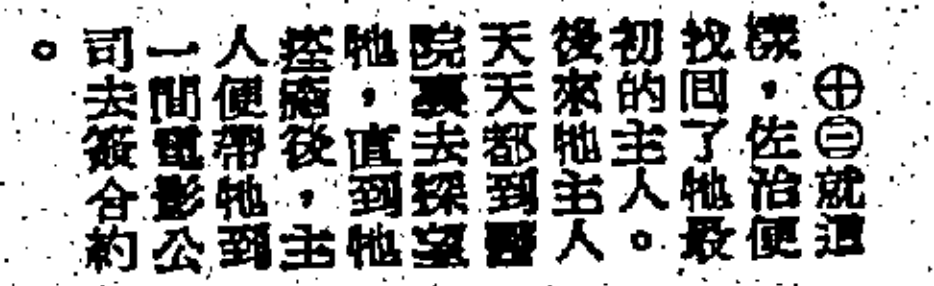 ㊉㊂就這
樣，佐治便
找囘了牠最
初的主人。
後來牠主人
天天都到醫
院裏去探望
牠，直到牠
痊癒後，主
人便帶牠到
一間電影公
司去簽合約
。